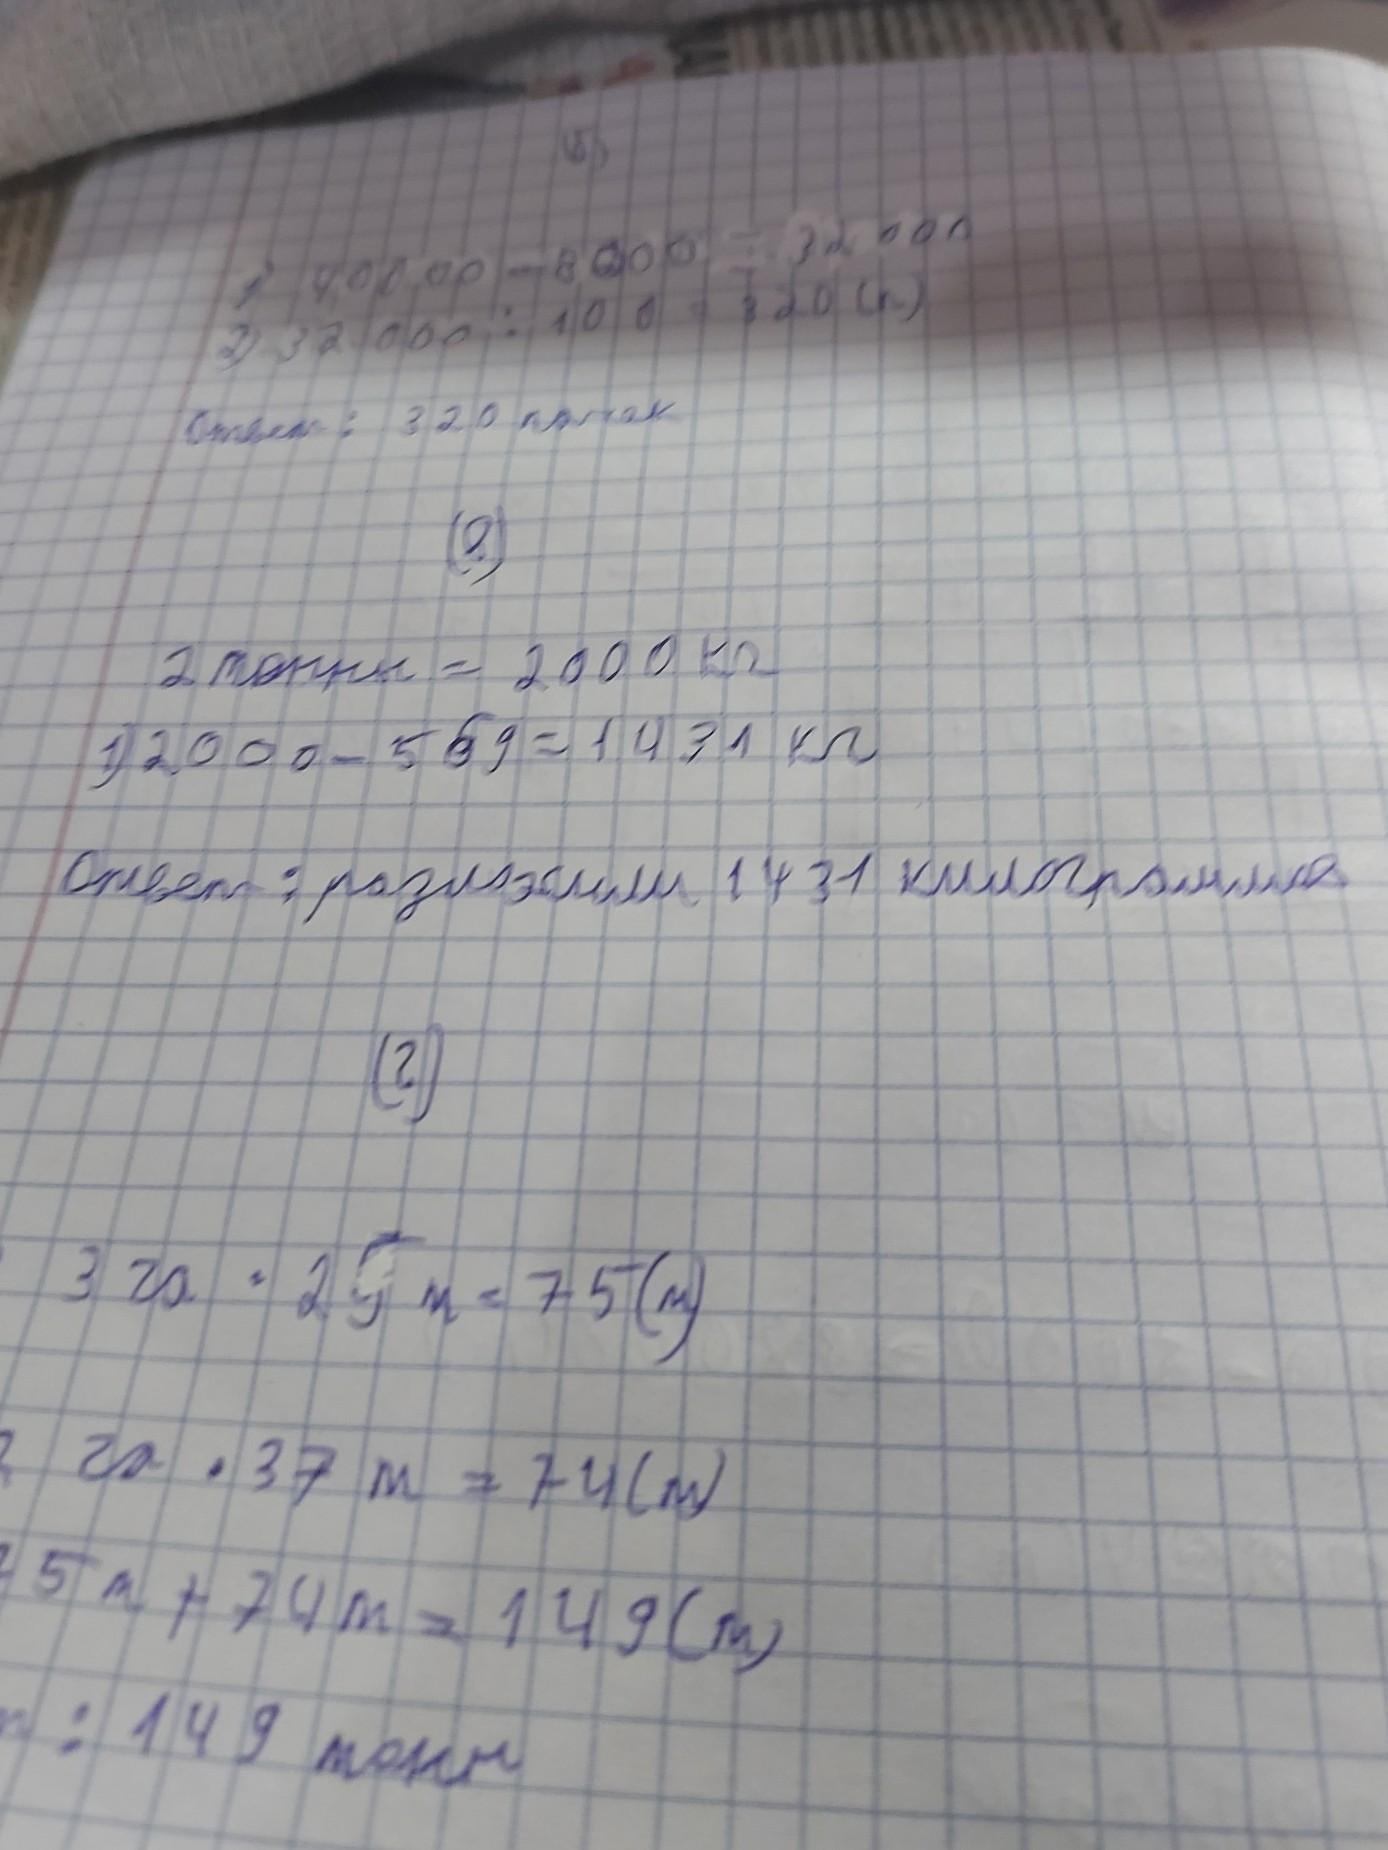 1) 40000 - 8000 = 32000
2) 32000 : 100 = 320 (п)
Ответ: 320 пачек
2 тонны = 2000 кг
1) 2000 - 569 = 1431 кг
Ответ: разложили 1431 килограмма
(2)
3 га · 25 т = 75 (т)
2 га · 37 т = 74 (т)
75 т + 74 т = 149 (т)
: 149 тонн